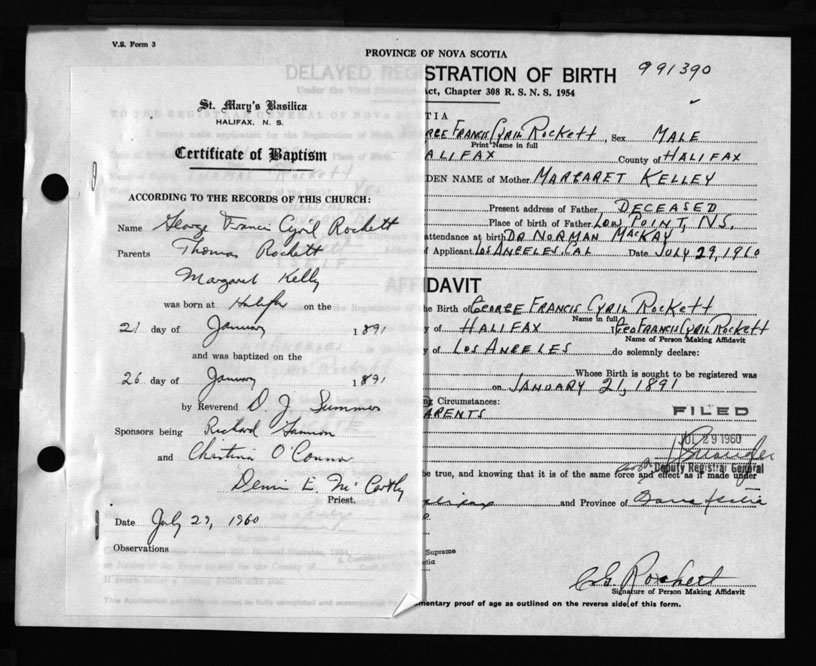 V.S. Form 3
PROVINCE OF NOVA SCOTIA
DELAYED REGISTRATION OF BIRTH
991390
Act, Chapter 308 R. S. N. S. 1954
St. Mary's Basilica
HALIFAX, N. S.
Certificate of Baptism
ACCORDING TO THE RECORDS OF THIS CHURCH:
Name George Francis Cyril Rockett
Parents Thomas Rockett
Margaret Kelly
was born at Halifax on the
21 day of January 1891
and was baptized on the
26 day of January 1891
by Reverend D. J. Summer
Sponsors being Richard
and Christina O'Connor
Denis E. McCarthy
Priest.
Date July 27, 1960
Observations
TIA
ORGE FRANCIS CYRIL ROCKETT Sex MALE
Print Name in full
ALIFAX County of HALIFAX
DEN NAME of Mother MARGARET KELLEY
Present address of Father DECEASED
Place of birth of Father LOW POINT, N.S.
attendance at birth DR NORMAN MACKAY
of Applicant LOS ANGELES, CAL Date JULY 29, 1960
AFFIDAVIT
he Birth of GEORGE FRANCIS CYRIL ROCKETT
Name in full
of HALIFAX I, GEO FRANCIS CYRIL ROCKETT
Name of Person Making Affidavit
y of LOS ANGELES do solemnly declare:
Whose Birth is sought to be registered was
on JANUARY 21, 1891
ng Circumstances:
ARENTS
FILED
JUL 29 1960
Deputy Registrar General
be true, and knowing that it is of the same force and effect as if made under
and Province of Nova Scotia
Supreme
otia
C. G. Rockett
Signature of Person Making Affidavit
mentary proof of age as outlined on the reverse side of this form.